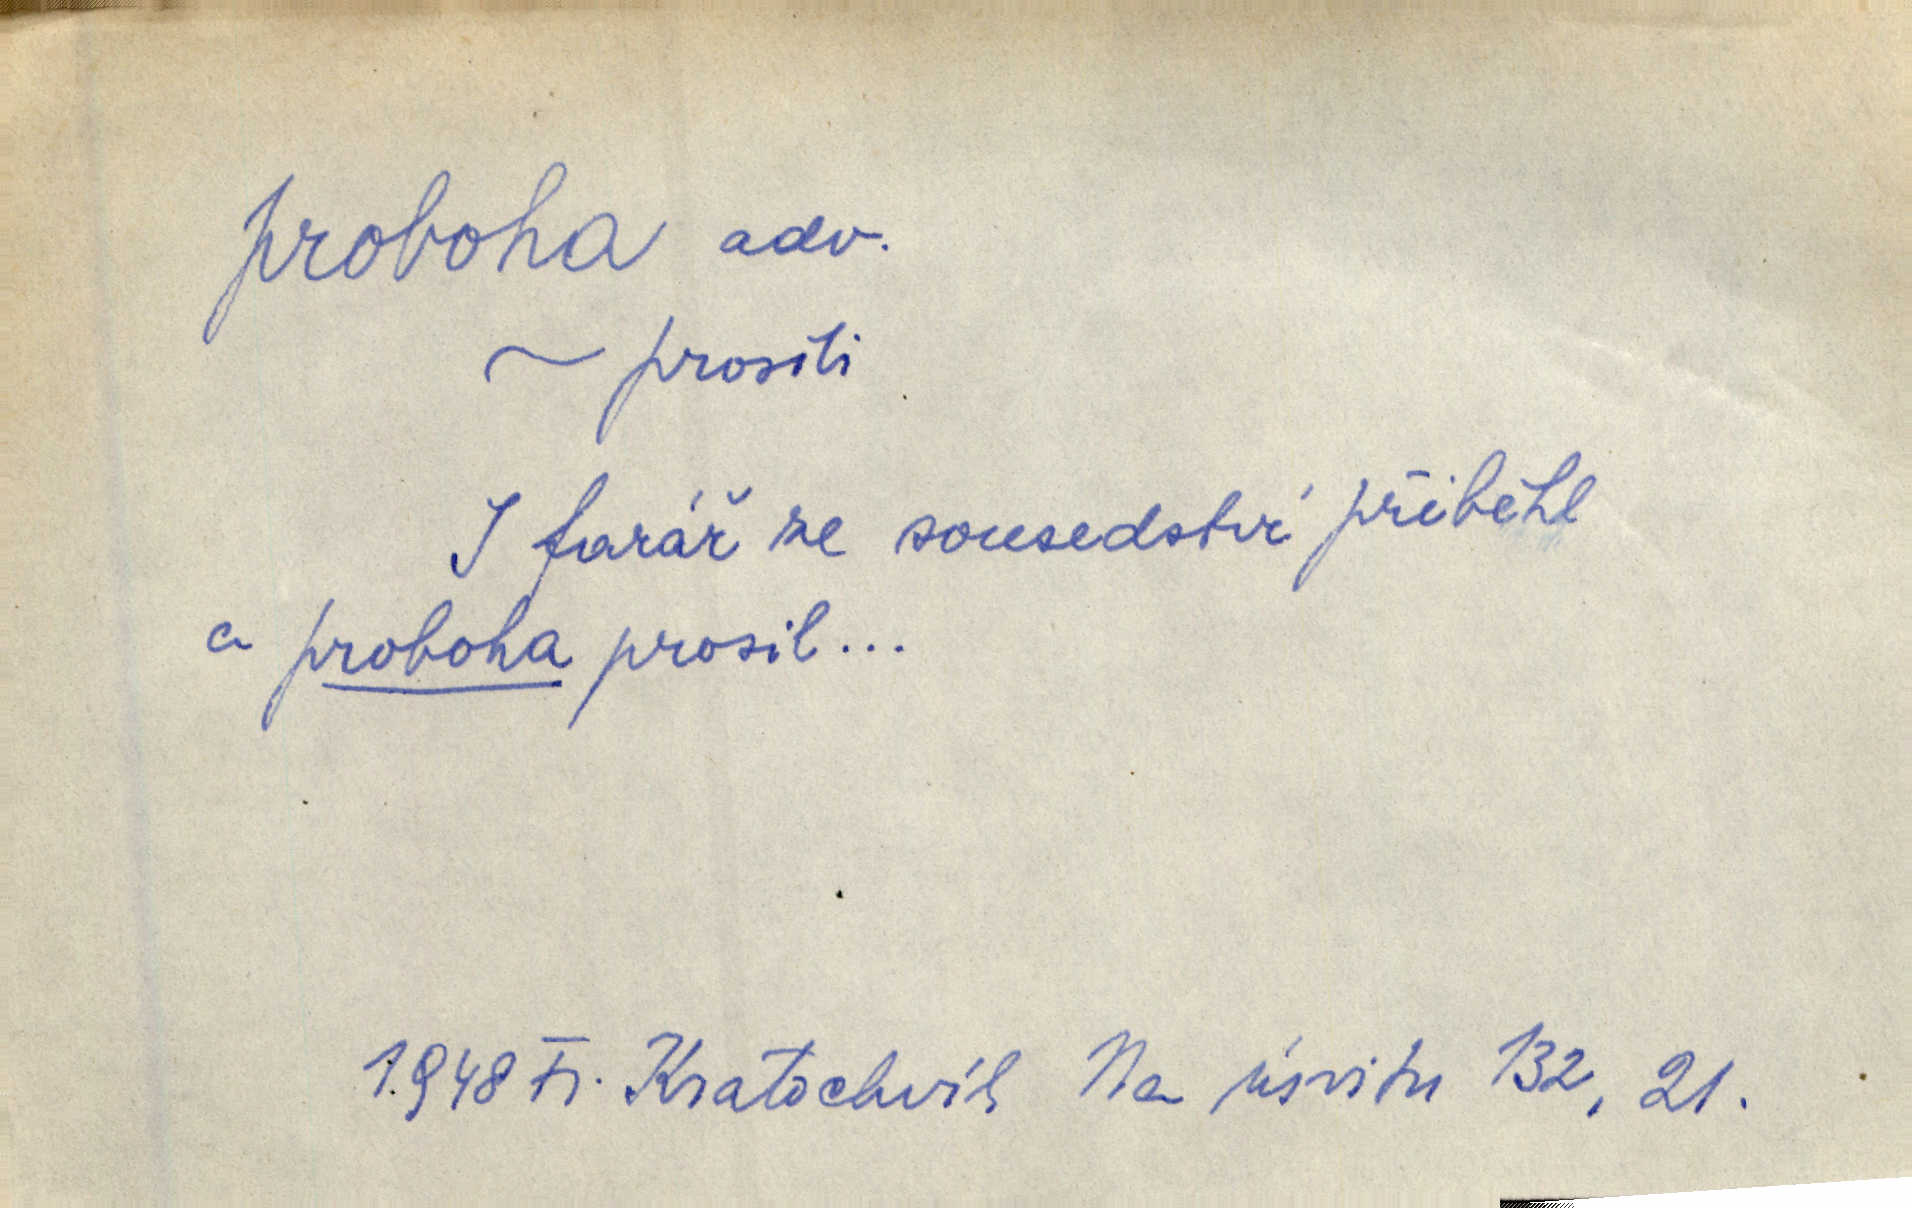 proboha adv.
~ prositi
I farář ze sousedství přiběhl
a proboha prosil...
1948 Fr. Kratochvíl Na úsvitu 132, 21.